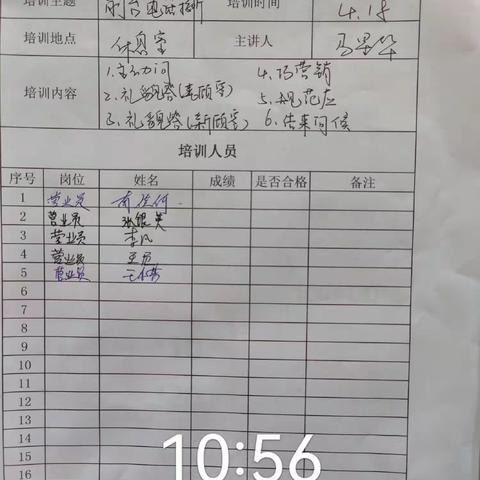 培训主题 前台电话接听 培训时间 4.18
培训地点 休息室 主讲人
培训内容
1.主动问 4.巧营销
2.礼貌答(老顾客) 5.规范应
3.礼貌答(新顾客) 6.结束问候
培训人员
序号 岗位 姓名 成绩 是否合格 备注
1 营业员
2 营业员 张银英
3 营业员 李凤
4 营业员
5 营业员
6
7
8
9
10
11
12
13
14
15
16
10:56